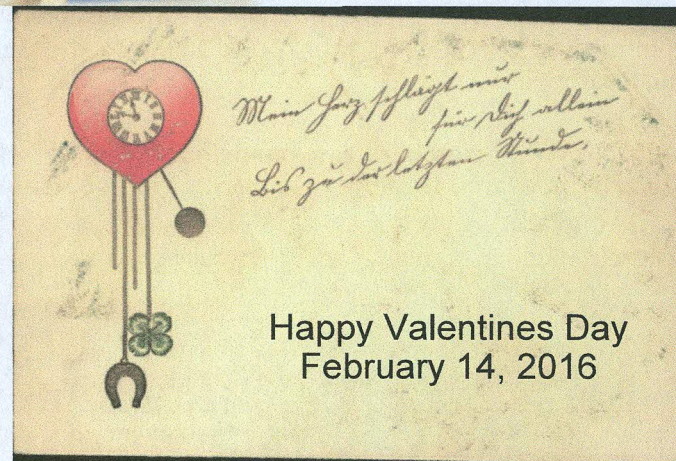 Mein Herz schlägt nur
für Dich allein
Bis zu der letzten Stunde.
Happy Valentines Day
February 14, 2016